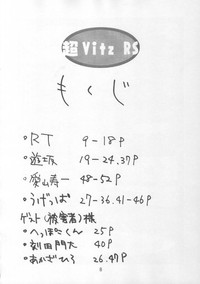 超Vitz RS
もくじ
・RT 9-18P
・遊坂 19-24.37P
・築山寿一 48-52P
・うげっぱ 27-36.41-46P
ゲスト(被害者)様
・へっぽこくん 25P
・刻田門大 40P
・あかざひろ 26.47P